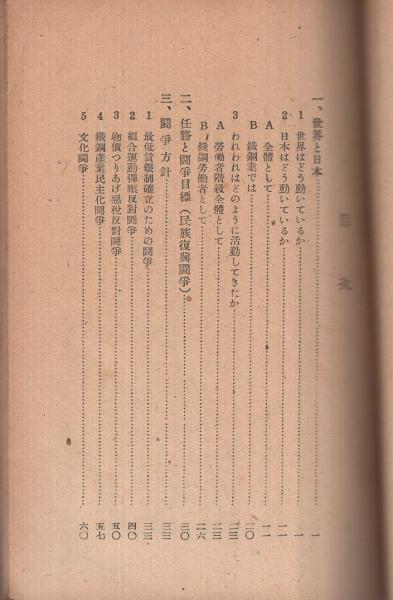 目次
一、世界と日本……一
1 世界はどう動いているか……一
2 日本はどう動いているか……一一
A 全體として……一一
B 鐵鋼業では……二〇
3 われわれはどのように活動してきたか……二三
A 勞働者階級全體として……二三
B 鐵鋼勞働者として……二六
二、任務と闘爭目標(民族復興闘爭)……三〇
三、闘爭方針……三三
1 最低賃銀制確立のための闘爭……三三
2 組合運動彈壓反對闘爭……四〇
3 物價つりあげ惡稅反對闘爭……五〇
4 鐵鋼產業民主化闘爭……五七
5 文化闘爭……六〇